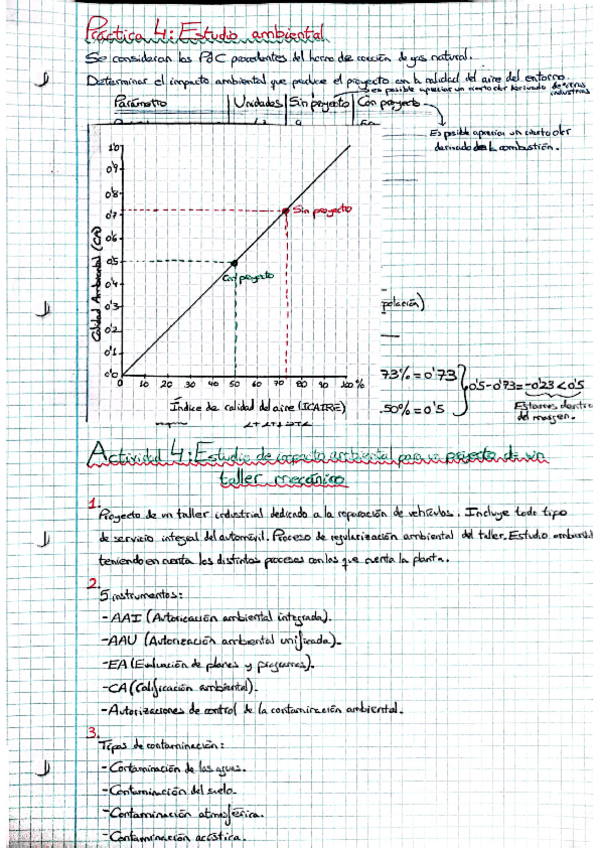 Práctica 4: Estudio ambiental
Se consideran los PSC procedentes del horno de cocción de gas natural.
Determinar el impacto ambiental que produce el proyecto con la calidad del aire del entorno.
es posible apreciar un cierto olor derivado de otras industrias
Parámetro Unidades Sin proyecto Con proyecto
Es posible apreciar un cierto olor
derivado de la combustión.
1'0
0'9
0'8
0'7
0'6
0'5
0'4
0'3
0'2
0'1
0'0
Calidad Ambiental (CA)
Sin proyecto
Con proyecto
0 10 20 30 40 50 60 70 80 90 100%
Índice de calidad del aire (ICAIRE)
polación)
73% = 0'73
50% = 0'5
0'5-0'73=-0'23<0'5
Estamos dentro
del margen.
Actividad 4: Estudio de impacto ambiental para un proyecto de un
taller mecánico
1.
Proyecto de un taller industrial dedicado a la reparación de vehículos. Incluye todo tipo
de servicio integral del automóvil. Proceso de regularización ambiental del taller. Estudio ambiental
teniendo en cuenta los distintos procesos con los que cuenta la planta.
2.
5 instrumentos:
-AAI (Autorización ambiental integrada).
-AAU (Autorización ambiental unificada).
-EA (Evaluación de planes y programas).
-CA (Calificación ambiental).
-Autorizaciones de control de la contaminación ambiental.
3.
Tipos de contaminación:
-Contaminación de las aguas.
-Contaminación del suelo.
-Contaminación atmosférica.
-Contaminación acústica.